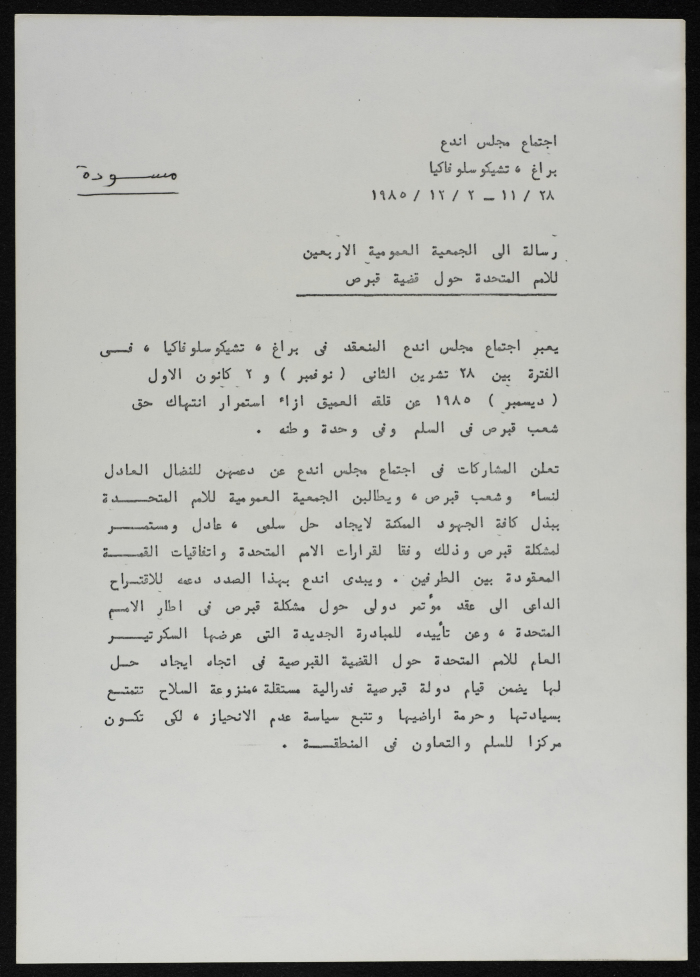 اجتماع مجلس اندع
براغ ، تشيكوسلوفاكيا
مسودة
٢٨ / ١١ - ٢ / ١٢ / ١٩٨٥
رسالة الى الجمعية العمومية الاربعين
للامم المتحدة حول قضية قبرص
يعبر اجتماع مجلس اندع المنعقد فى براغ ، تشيكوسلوفاكيا ، فى
الفترة بين ٢٨ تشرين الثانى ( نوفمبر ) و ٢ كانون الاول
( ديسمبر ) ١٩٨٥ عن قلقه العميق ازاء استمرار انتهاك حق
شعب قبرص فى السلم وفى وحدة وطنه .
تعلن المشاركات فى اجتماع مجلس اندع عن دعمهن للنضال العادل
لنساء وشعب قبرص ، ويطالبن الجمعية العمومية للامم المتحدة
ببذل كافة الجهود الممكنة لايجاد حل سلمى ، عادل ومستمر
لمشكلة قبرص وذلك وفقا لقرارات الامم المتحدة واتفاقيات القمة
المعقودة بين الطرفين . ويبدى اندع بهذا الصدد دعمه للاقتراح
الداعى الى عقد مؤتمر دولى حول مشكلة قبرص فى اطار الامم
المتحدة ، وعن تأييده للمبادرة الجديدة التى عرضها السكرتير
العام للامم المتحدة حول القضية القبرصية فى اتجاه ايجاد حل
لها يضمن قيام دولة قبرصية فدرالية مستقلة ،منزوعة السلاح تتمتع
بسيادتها وحرمة اراضيها وتتبع سياسة عدم الانحياز ، لكى تكون
مركزا للسلم والتعاون فى المنطقة .